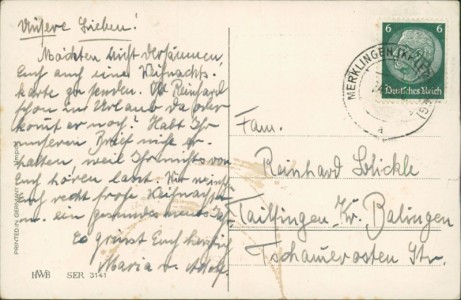 Unsere Lieben!
Möchten nicht versäumen
Euch auch eine Weihnachts-
karte zu senden. Ist Reinhard
schon im Urlaub da oder
kommt er noch? Habt Ihr
unseren Brief nicht er-
halten weil Ihr nichts von
Euch hören lasst. Wir wünschen
Euch recht frohe Weihnachten
u. ein gesundes neues Jahr
Es grüsst Euch herzlich
Maria u. Adolf
HWB SER 3141
PRINTED IN GERMANY
6 6
Deutsches Reich
MERKLINGEN
a
Fam.
Reinhard Schickle
Tailfingen Kr. Balingen
Tschauerosten Str.